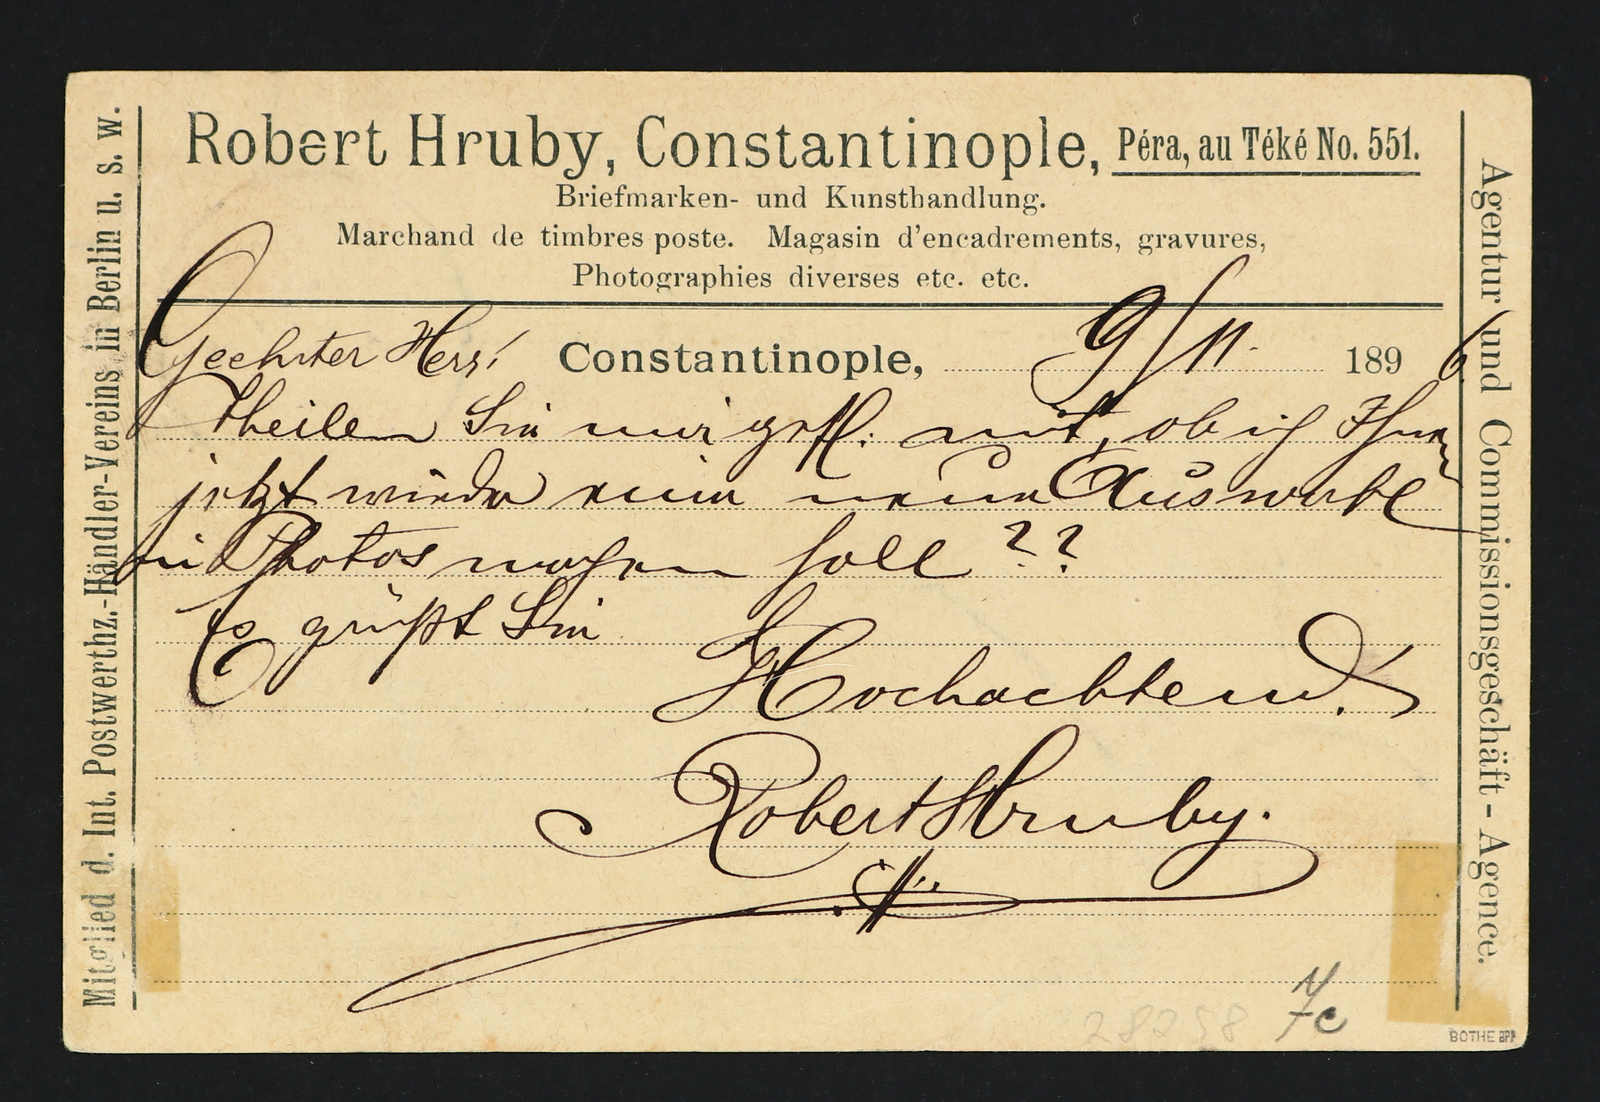 Robert Hruby, Constantinople, Péra, au Téké No. 551.
Briefmarken- und Kunsthandlung.
Marchand de timbres poste. Magasin d'encadrements, gravures,
Photographies diverses etc. etc.
Geehrter Herr! Constantinople, 9/11. 1896
Theilen Sie mir gefl. mit, ob ich Ihnen
jetzt wieder eine neue Auswahl
in Photos machen soll??
Es grüßt Sie
Hochachtend.
Robert Hruby.
Mitglied d. Int. Postwerthz.-Händler-Vereins in Berlin u. s. w.
Agentur und Commissionsgeschäft - Agence.
28258
BOTHE BPP